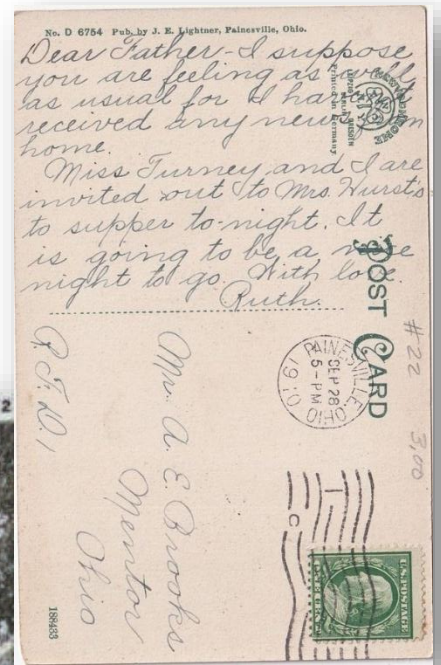 No. D 6754 Pub. by J. E. Lightner, Painesville, Ohio.
Dear Father - I suppose
you are feeling as well
as usual for I haven't
received any news from
home.
Miss Turney and I are
invited out to Mrs. Hurst's
to supper to-night. It
is going to be a nice
night to go. With love.
Ruth.
POST CARD
LEIPZIG BERLIN DRESDEN
Printed in Germany
PAINESVILLE, OHIO
SEP 28
5-PM
1910
#22 3.00
Mr. A. E. Brooks
Mentor
Ohio
R. F. D. 1
U.S. POSTAGE
ONE CENT
188433
2